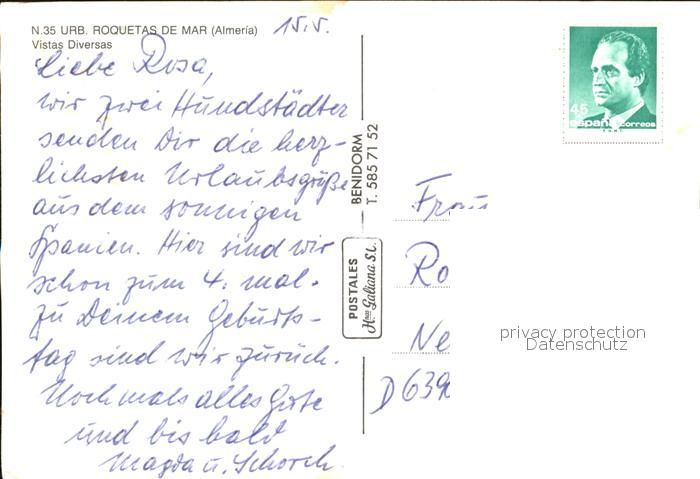 N.35 URB. ROQUETAS DE MAR (Almería)
Vistas Diversas
15.5.
Liebe Rosa,
wir zwei Hundstädter
senden Dir die herz-
lichsten Urlaubsgrüße
aus dem sonnigen
Spanien. Hier sind wir
schon zum 4. mal.
Zu Deinem Geburts-
tag sind wir zurück.
Nochmals alles Gute
und bis bald
Magda u. Schorch.
BENIDORM
T. 585 71 52
POSTALES
Hnos Galiana S.L.
45
españa correos
Frau
Ro
Ne
D 639
privacy protection
Datenschutz